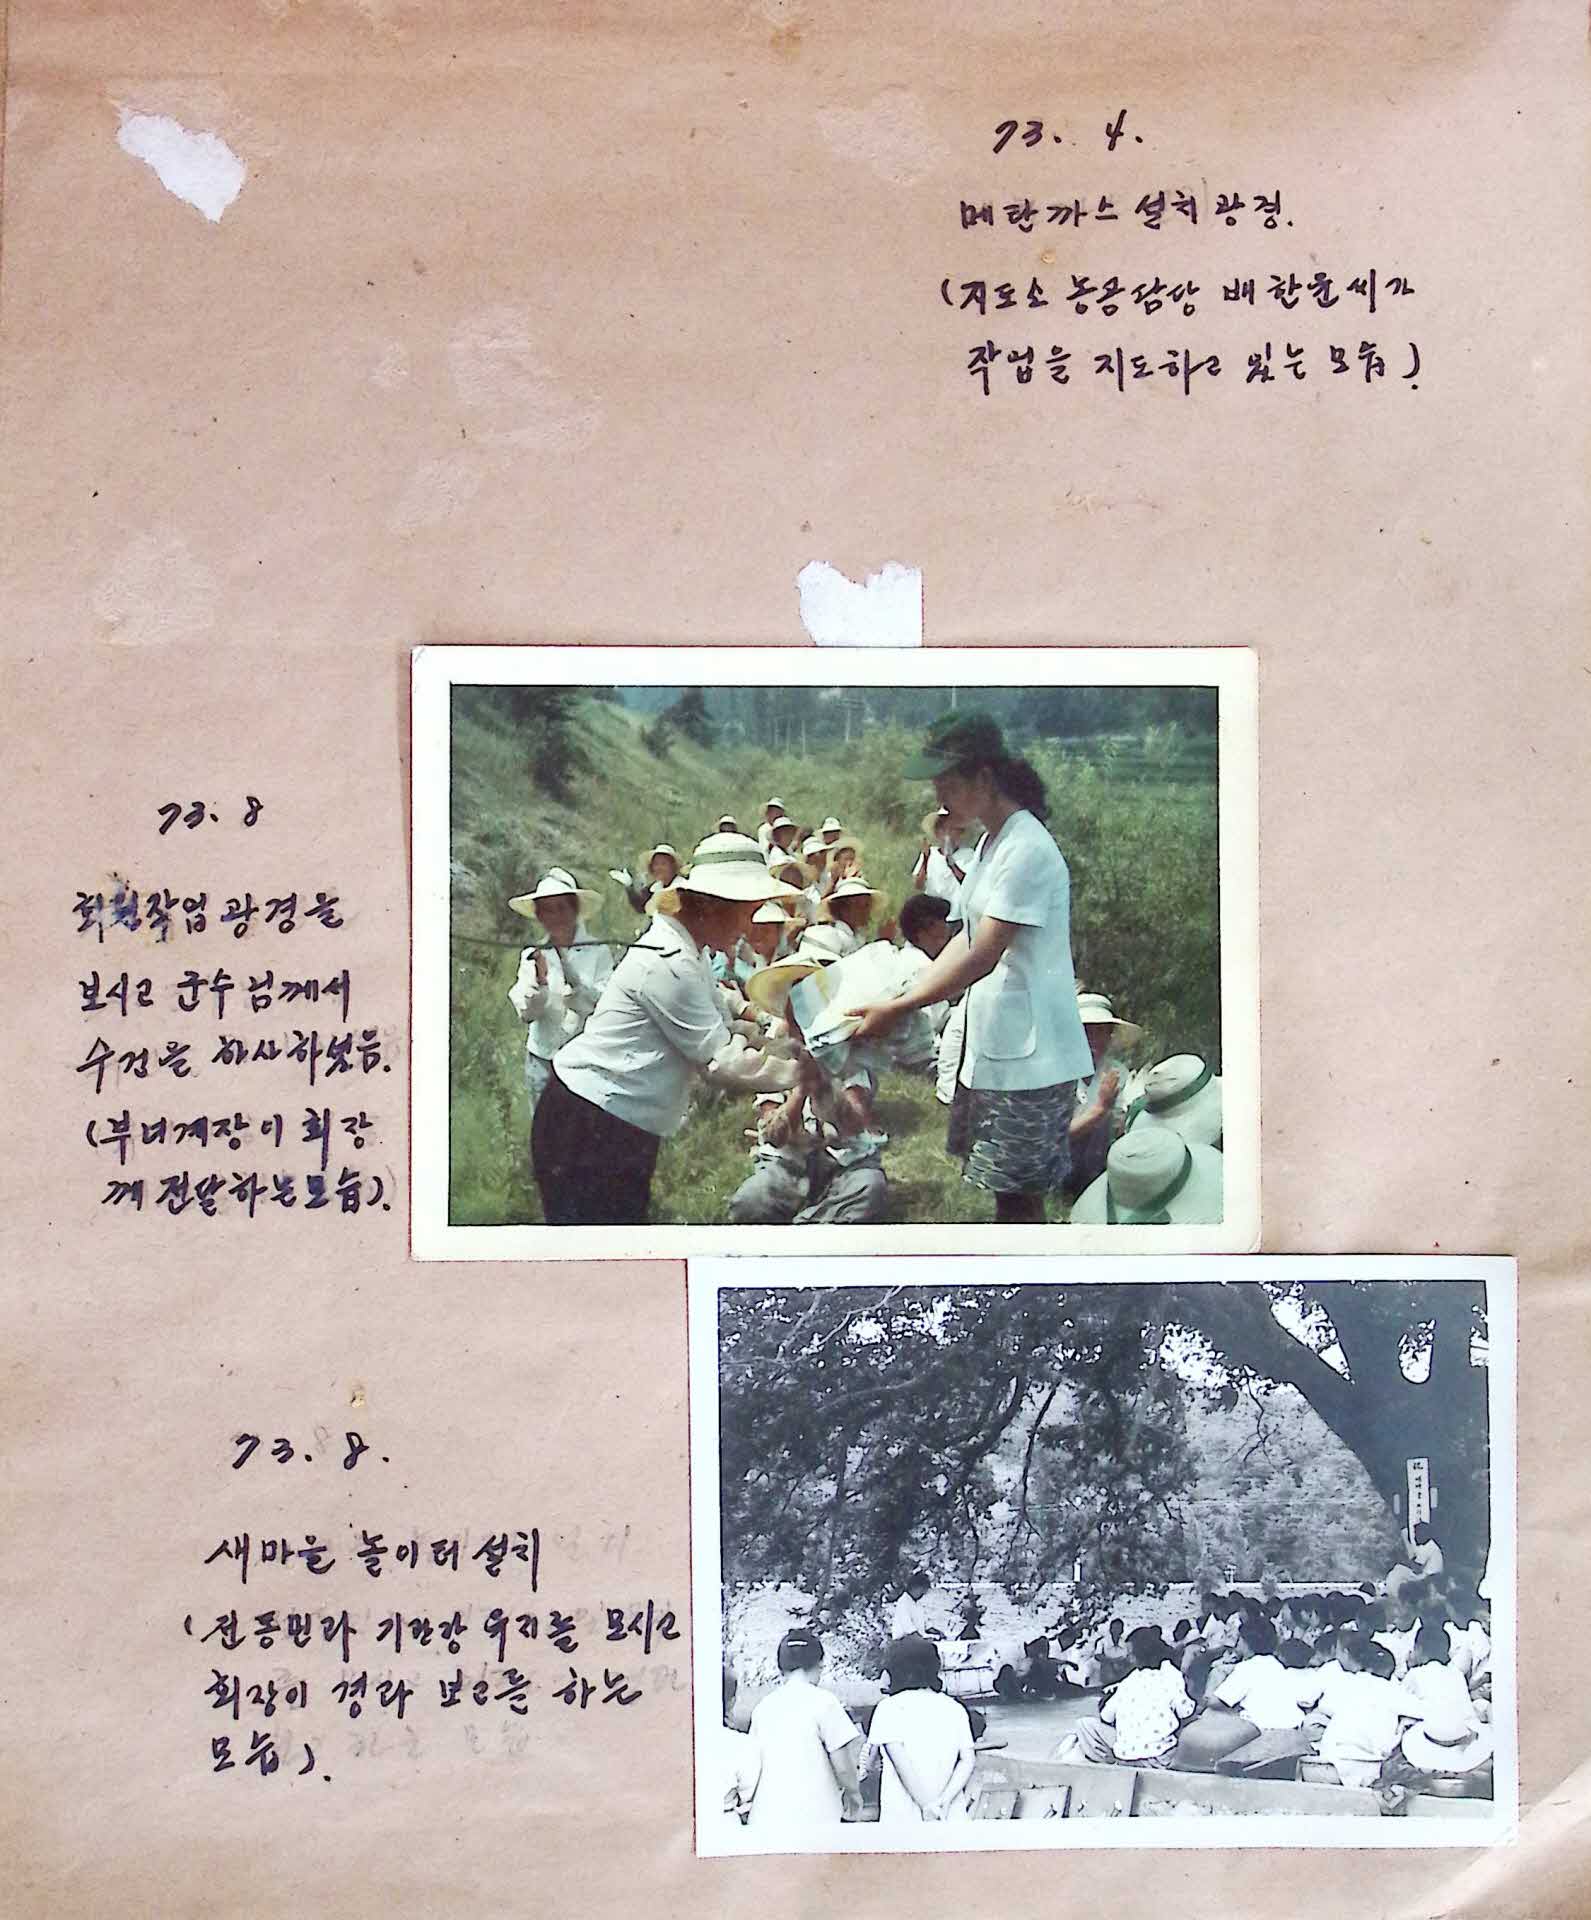 73. 4.
메탄까스 설치 광경.
(지도소 농공담당 배한윤씨가
작업을 지도하고 있는 모습).
73. 8
회원작업 광경을
보시고 군수님께서
수건을 하사하셨음.
(부녀계장이 회장
께 전달하는 모습).
73. 8.
새마을 놀이터 설치
(전동민과 기관장 유지를 모시고
회장이 경과 보고를 하는
모습).